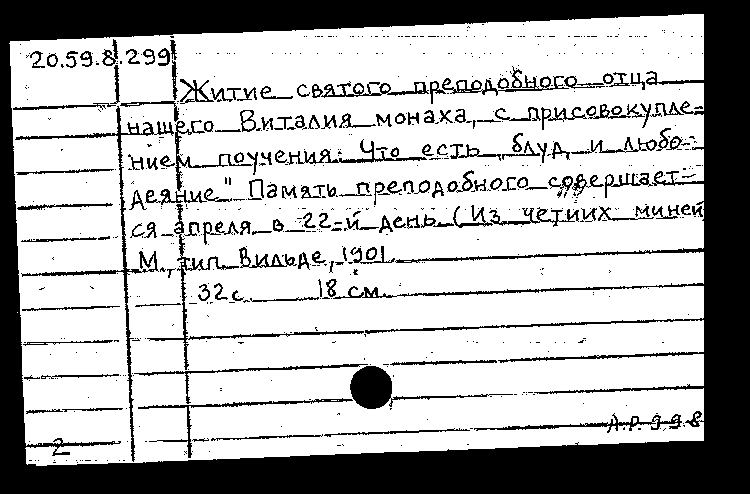 20.59.8.299
Житие святого преподобного отца
нашего Виталия монаха, с присовокупле-
нием поучения: Что есть „блуд и любо-
деяние" Память преподобного совершает-
ся апреля в 22-й день (Из четиих миней
М., тип. Вильде, 1901.
32 с. 18 см.
А.Р. 998
2